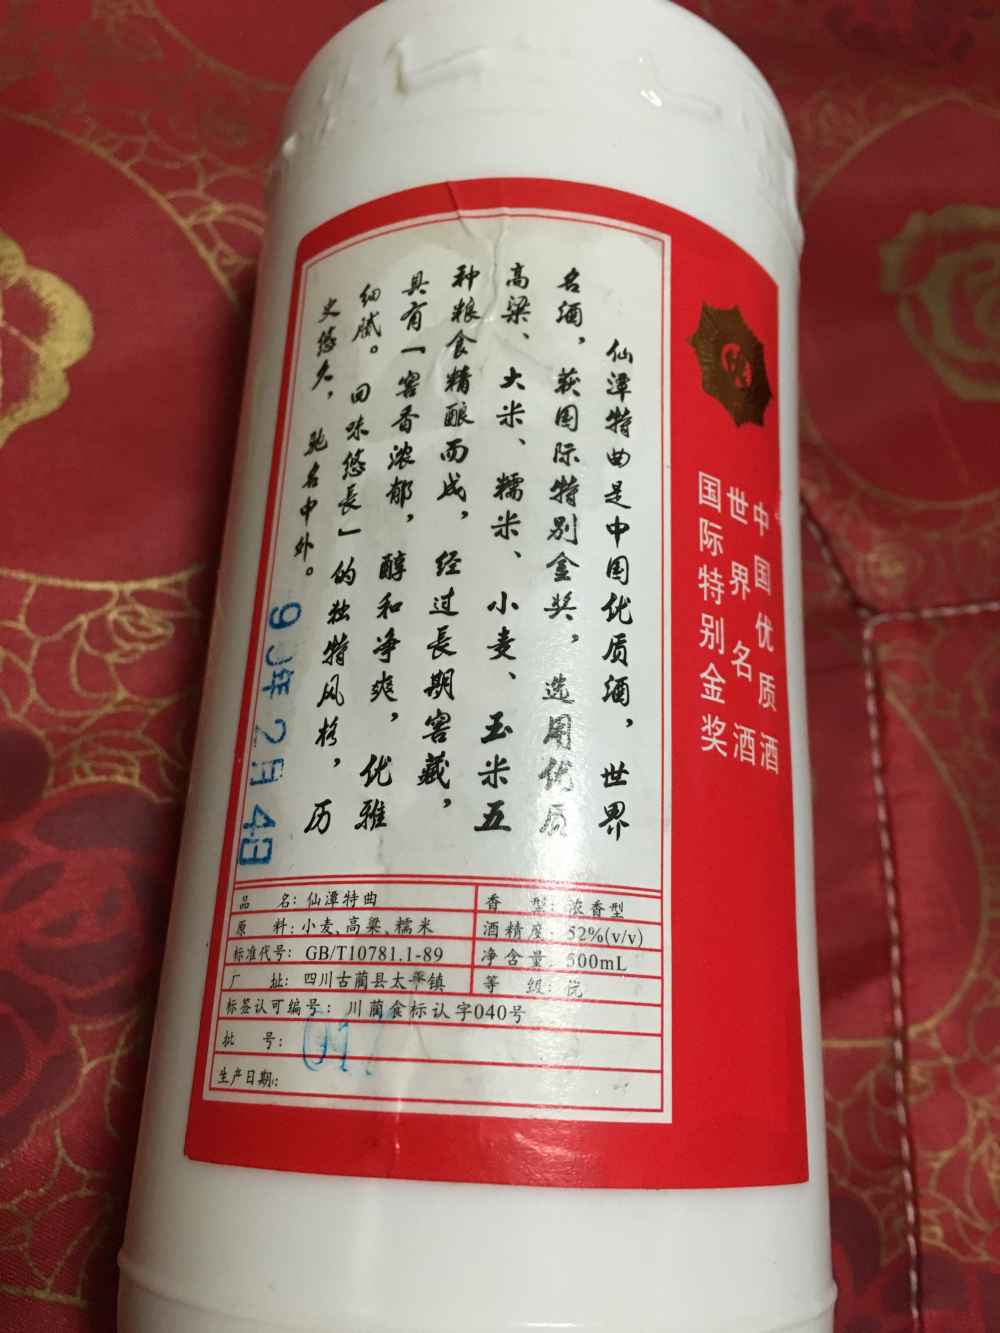 中国优质酒
世界名酒
国际特别金奖
仙潭特曲是中国优质酒，世界
名酒，获国际特别金奖，选用优质
高粱、大米、糯米、小麦、玉米五
种粮食精酿而成，经过長期窖藏，
具有「窖香浓郁，醇和净爽，优雅
细腻。回味悠長」的独特风格，历
史悠久，驰名中外。
9 年2月4日
品 名：仙潭特曲
香 型：浓香型
原 料：小麦、高粱、糯米
酒精度：52%(v/v)
标准代号：GB/T10781.1-89
净含量：500mL
厂 址：四川古蔺县太平镇
等 级：优
标签认可编号：川蔺食标认字040号
批 号：
生产日期：